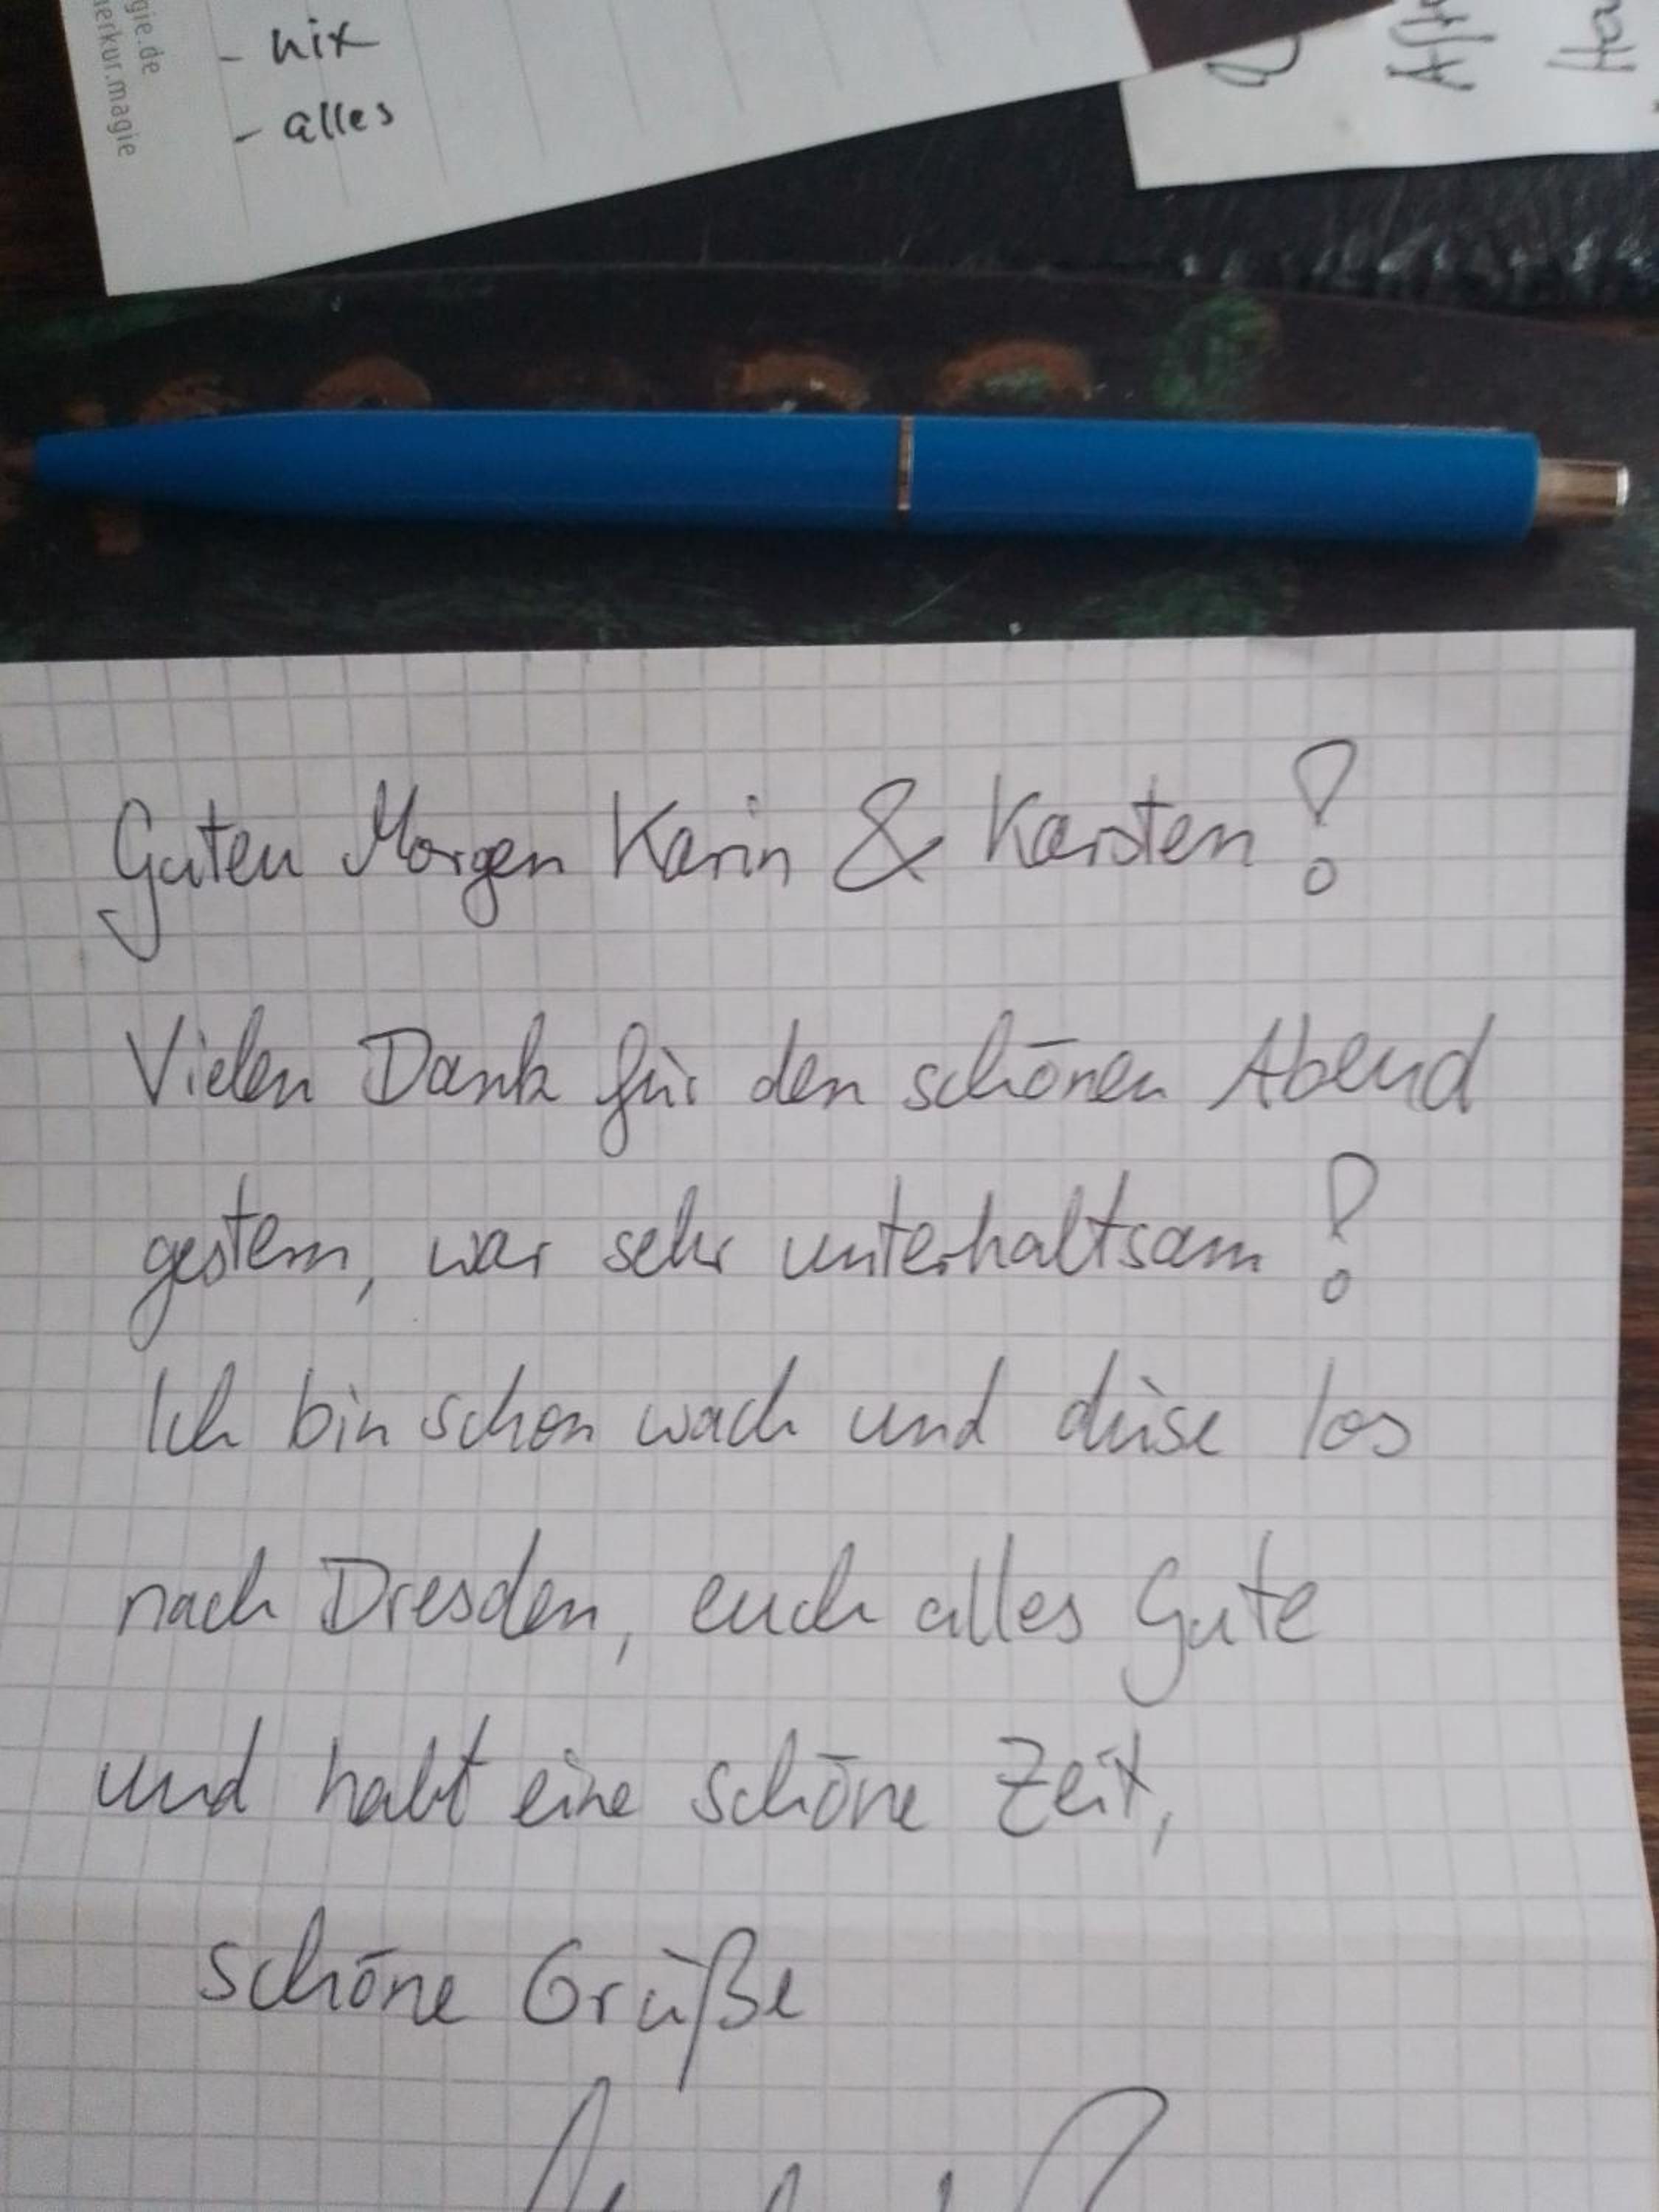 - nix
- alles
gie.de
erkur.magie
Guten Morgen Karin & Karsten!
Vielen Dank für den schönen Abend
gestern, war sehr unterhaltsam!
Ich bin schon wach und düse los
nach Dresden, euch alles Gute
und habt eine schöne Zeit,
schöne Grüße